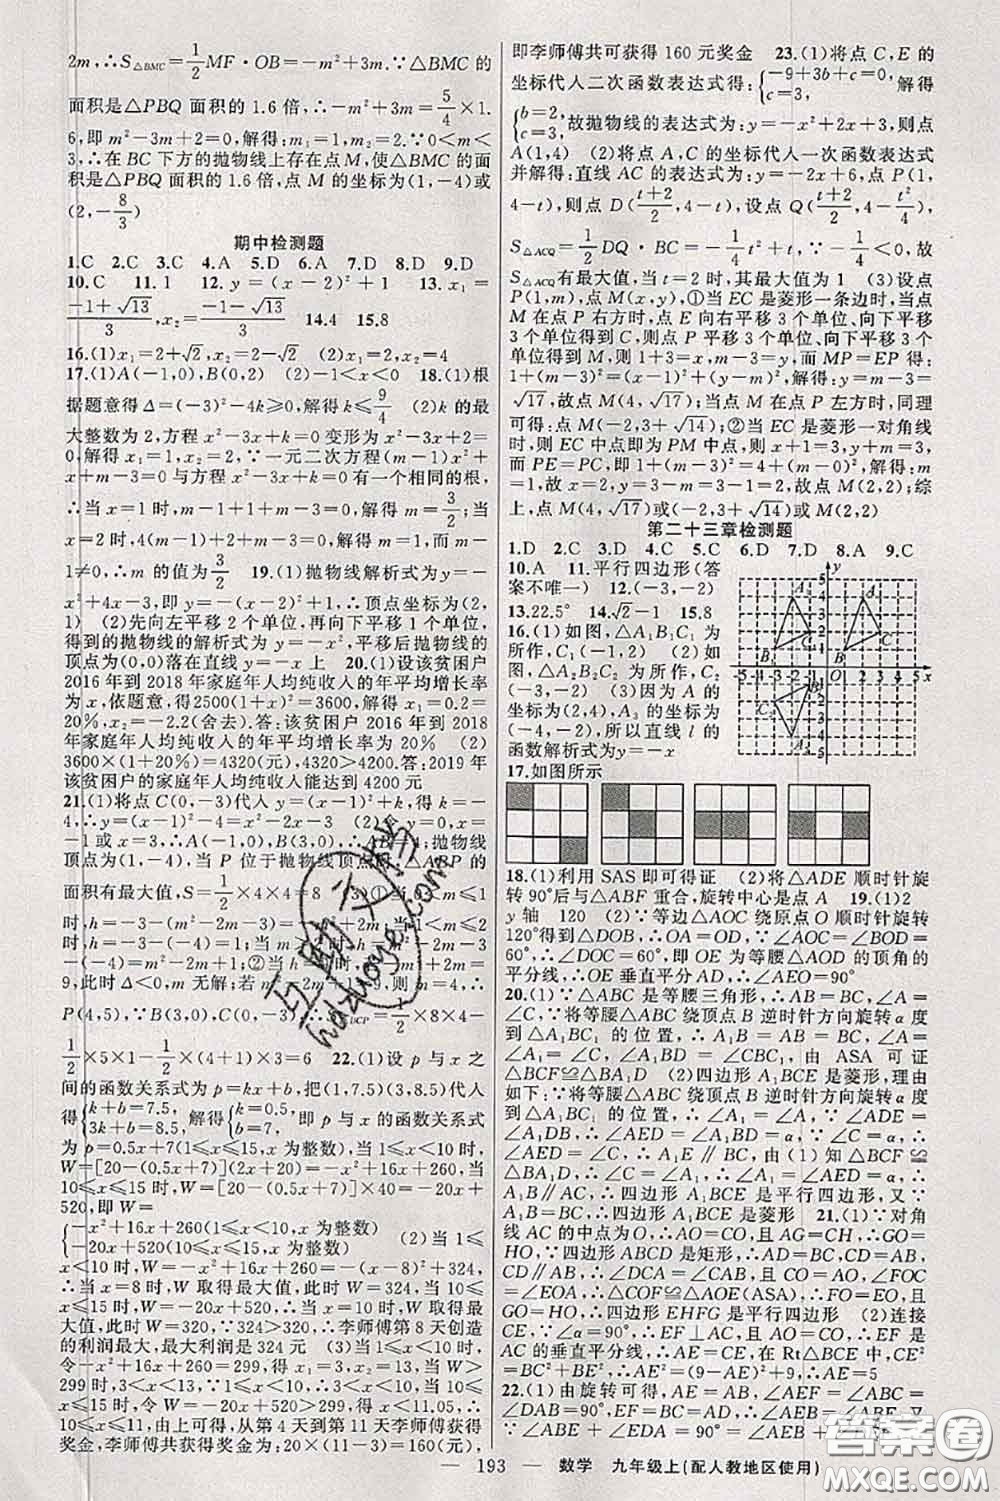 2m,∴S△BMC=1/2 MF·OB=-m²+3m.∵△BMC的
面积是△PBQ 面积的1.6倍,∴-m²+3m=5/4×1.
6,即m²-3m+2=0,解得:m₁=1,m₂=2.∵0<m<
3,∴在BC下方的抛物线上存在点M,使△BMC的面
积是△PBQ面积的1.6倍,点M的坐标为(1,-4)或
(2,-8/3)
期中检测题
1.C 2.C 3.C 4.A 5.D 6.A 7.D 8.D 9.D
10.C 11.1 12.y=(x-2)²+1 13.x₁=
(-1+√13)/3,x₂=(-1-√13)/3 14.4 15.8
16.(1)x₁=2+√2,x₂=2-√2 (2)x₁=2,x₂=4
17.(1)A(-1,0),B(0,2) (2)-1<x<0 18.(1)根
据题意得Δ=(-3)²-4k≥0,解得k≤9/4 (2)k的最
大整数为2,方程x²-3x+k=0变形为x²-3x+2=
0,解得x₁=1,x₂=2,∵一元二次方程(m-1)x²+
x+m-3=0与方程x²-3x+k=0有一个相同的根,
∴当x=1时,m-1+1+m-3=0,解得m=3/2;当
x=2时,4(m-1)+2+m-3=0,解得m=1,而m-
1≠0,∴m的值为3/2 19.(1)抛物线解析式为y=-
x²+4x-3,即y=-(x-2)²+1,∴顶点坐标为(2,
1) (2)先向左平移2个单位,再向下平移1个单位,
得到的抛物线的解析式为y=-x²,平移后抛物线的
顶点为(0,0)落在直线y=-x上 20.(1)设该贫困户
2016年到2018年家庭年人均纯收入的年平均增长率
为x,依题意,得2500(1+x)²=3600,解得x₁=0.2=
20%,x₂=-2.2(舍去).答:该贫困户2016年到2018
年家庭年人均纯收入的年平均增长率为20% (2)
3600×(1+20%)=4320(元),4320>4200.答:2019年
该贫困户的家庭年人均纯收入能达到4200元
21.(1)将点C(0,-3)代入y=(x-1)²+k,得k=
-4,∴y=(x-1)²-4=x²-2x-3 (2)令y=0,x=
-1或x=3,∴A(-1,0),B(3,0),∴AB=4;抛物线
顶点,当P位于抛物线顶点时,△ABP的
面积有最大值,S=1/2×4×4=8 (3)①当0<m≤1
时,h=-3-(m²-2m-3)=-m²+2m;当1<m≤2
时,h=-3-(-4)=1;当m>2时,h=m²-2m-3
-(-4)=m²-2m+1;②当h=9时,若-m²+2m=
9,此时Δ<0,m无解;若m²-2m+1=9,则m=4,∴
P(4,5),∵B(3,0),C(0,-3),∴S△BCP=1/2×8×4-
1/2×5×1-1/2×(4+1)×3=6 22.(1)设p与x之
间的函数关系式为p=kx+b,把(1,7.5)(3,8.5)代入
得{k+b=7.5, 3k+b=8.5,解得{k=0.5, b=7,即p与x的函数关系式
为p=0.5x+7(1≤x≤15,x为整数),当1≤x<10时,
W=[20-(0.5x+7)](2x+20)=-x²+16x+260,当
10≤x≤15时,W=[20-(0.5x+7)]×40=-20x+
520,即W=
{-x²+16x+260(1≤x<10,x为整数)
-20x+520(10≤x≤15,x为整数) (2)当1≤
x<10时,W=-x²+16x+260=-(x-8)²+324,
∴当x=8时,W取得最大值,此时W=324,当10≤
x≤15时,W=-20x+520,∴当x=10时,W取得最
大值,此时W=320,∵324>320,∴李师傅第8天创造
的利润最大,最大利润是324元 (3)当1≤x<10时,
令-x²+16x+260=299,得x₁=3,x₂=13,当W>
299时,3<x<13,∵1≤x<10,∴3<x<10,当10≤
x≤15时,令W=-20x+520>299,得x<11.05,∴10
≤x≤11,由上可得,从第4天到第11天李师傅获得
奖金,李师傅共获得奖金为:20×(11-3)=160(元),
即李师傅共可获得160元奖金 23.(1)将点C,E的
坐标代入二次函数表达式得:{-9+3b+c=0, c=3,解得
{b=2, c=3,故抛物线的表达式为:y=-x²+2x+3,则点
A(1,4) (2)将点A,C的坐标代入一次函数表达式
并解得:直线AC的表达式为:y=-2x+6,点P(1,
4-t),则点D((t+2)/2,4-t),设点Q((t+2)/2,4-t²/4),
S△ACQ=1/2 DQ·BC=-1/4 t²+t,∵-1/4<0,故
S△ACQ有最大值,当t=2时,其最大值为1 (3)设点
P(1,m),点M(x,y),①当EC是菱形一条边时,当点
M在点P右方时,点E向右平移3个单位、向下平移
3个单位得到C,则点P向右平移3个单位、向下平移3个
单位得到M,则1+3=x,m-3=y,而MP=EP得:
1+(m-3)²=(x-1)²+(y-m)²,解得:y=m-3=
√17,故点M(4,√17);当点M在点P左方时,同理
可得:点M(-2,3+√14);②当EC是菱形一对角线
时,则EC中点即为PM中点,则x+1=3,y+m=3,
而PE=PC,即1+(m-3)²=4+m²,解得:m=
1,故x=2,y=3-m=3-1=2,故点M(2,2);综
上,点M(4,√17)或(-2,3+√14)或M(2,2)
第二十三章检测题
1.D 2.C 3.D 4.C 5.C 6.D 7.D 8.A 9.C
10.A 11.平行四边形(答
案不唯一) 12.(-3,-2)
13.22.5° 14.√2-1 15.8
16.(1)如图,△A₁B₁C₁为
所作,C₁(-1,2) (2)如
图,△A₂B₂C₂为所作,C₂
(-3,-2) (3)因为A的
坐标为(2,4),A₃的坐标为
(-4,-2),所以直线l的
函数解析式为y=-x
17.如图所示
18.(1)利用SAS即可得证 (2)将△ADE顺时针旋
转90°后与△ABF重合,旋转中心是点A 19.(1)2
y轴 120 (2)∵等边△AOC绕原点O顺时针旋转
120°得到△DOB,∴OA=OD,∵∠AOC=∠BOD=
60°,∴∠DOC=60°,即OE为等腰△AOD的顶角的
平分线,∴OE垂直平分AD,∴∠AEO=90°
20.(1)∵△ABC是等腰三角形,∴AB=BC,∠A=
∠C,∵将等腰△ABC绕顶点B逆时针方向旋转α度
到△A₁BC₁的位置,∴A₁B=AB=BC,∠A=
∠A₁=∠C,∠A₁BD=∠CBC₁,由ASA可证
△BCF≌△BA₁D (2)四边形A₁BCE是菱形,理由
如下:∵将等腰△ABC绕顶点B逆时针方向旋转α度
到△A₁BC₁的位置,∴∠A₁=∠A,∵∠ADE=
∠A₁DB,∴∠AED=∠A₁BD=α,∵∠C=α,∴
∠AED=∠C,∴A₁E∥BC,由(1)知△BCF≌
△BA₁D,∴∠C=∠A₁,∴∠A₁=∠AED=α,∴
A₁B∥AC,∴四边形A₁BCE是平行四边形,又∵
A₁B=BC,∴四边形A₁BCE是菱形 21.(1)∵对角
线AC的中点为O,∴AO=CO,且AG=CH,∴GO=
HO,∵四边形ABCD是矩形,∴AD=BC,CD=AB,
CD∥AB,∴∠DCA=∠CAB,且CO=AO,∠FOC
=∠EOA,∴△COF≌△AOE(ASA),∴FO=EO,且
GO=HO,∴四边形EHFG是平行四边形 (2)连接
CE,∵∠α=90°,∴EF⊥AC,且AO=CO,∴EF是
AC的垂直平分线,∴AE=CE,在Rt△BCE中,CE²
=BC²+BE²,∴AE²=(9-AE)²+9,∴AE=5
22.(1)由旋转可得,AE=AD,∠BAC=∠EAF=
∠DAB,又∵∠ABE+∠EDA=90°=∠AEB
193 数学 九年级上(配人教地区使用)
答案圈
MXQE.COM